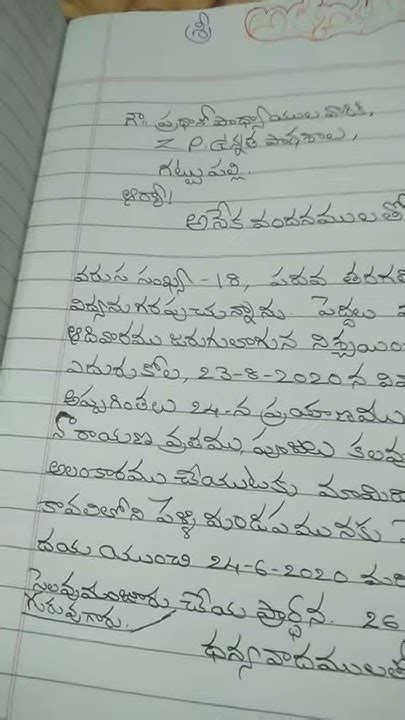 శ్రీ
గౌ. ప్రధానోపాధ్యాయుల వారు,
Z.P. ఉన్నత పాఠశాల,
గట్టుపల్లి.
ఆర్యా!
అనేక వందనములతో
వరుస సంఖ్య -18, పదవ తరగతి
విద్యను గరపుచున్నాను. పెద్దలు
ఆదివారము జరుగులాగున నిశ్చయిం
ఎదురుకోల, 23-8-2020 న వి
అప్పగింతలు 24-న ప్రయాణము
నారాయణ వ్రతము, పూజలు కలవు
అలంకారము చేయుటకు మామిడి
కావలిలోని పెళ్ళి మండపమునకు
దయ యుంచి 24-6-2020 మరి
సెలవు మంజూరు చేయ ప్రార్థన. 26
గురువుగారు.
ధన్యవాదములతో